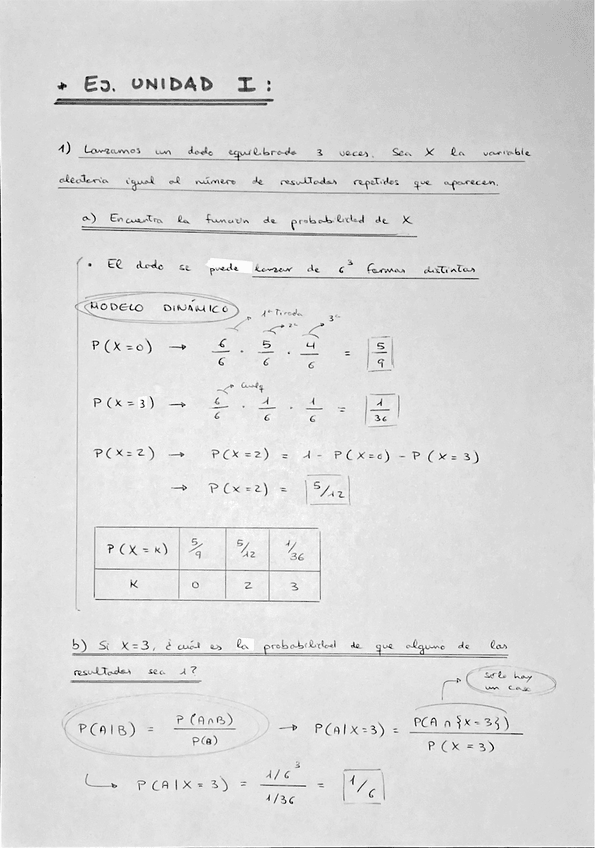 * EJ. UNIDAD I :
1) Lanzamos un dado equilibrado 3 veces. Sea X la variable
aleatoria igual al número de resultados repetidos que aparecen.
a) Encuentra la función de probabilidad de X
• El dado se puede lanzar de 6³ formas distintas
MODELO DINÁMICO
1ª Tirada 2ª 3ª
P(X=0) → 6/6 · 5/6 · 4/6 = 5/9
Cualq
P(X=3) → 6/6 · 1/6 · 1/6 = 1/36
P(X=2) → P(X=2) = 1 - P(X=0) - P(X=3)
→ P(X=2) = 5/12
P(X=K) 5/9 5/12 1/36
K 0 2 3
b) Si X=3, ¿cuál es la probabilidad de que alguno de las
resultados sea 1?
sólo hay
un caso
P(A|B) = P(A∩B) / P(B) → P(A|X=3) = P(A ∩ {X=3}) / P(X=3)
↳ P(A|X=3) = 1/6³ / 1/36 = 1/6